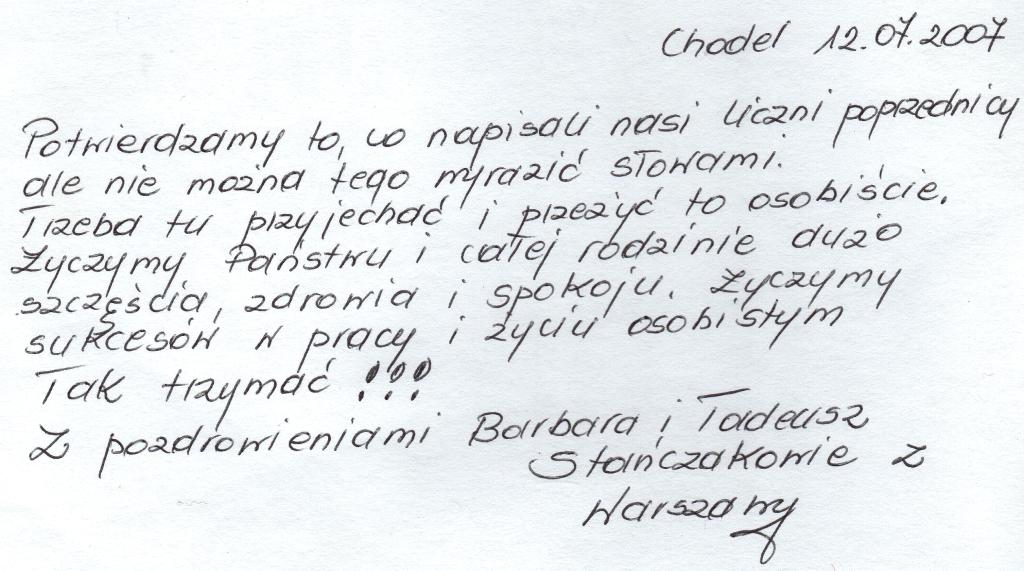 Chodel 12.07.2007
Potwierdzamy to, co napisali nasi liczni poprzednicy
ale nie można tego wyrazić słowami.
Trzeba tu przyjechać i przeżyć to osobiście.
Życzymy Państwu i całej rodzinie dużo
szczęścia, zdrowia i spokoju. Życzymy
sukcesów w pracy i życiu osobistym
Tak trzymać !!!
Z pozdrowieniami Barbara i Tadeusz
Stańczakowie z
Warszawy